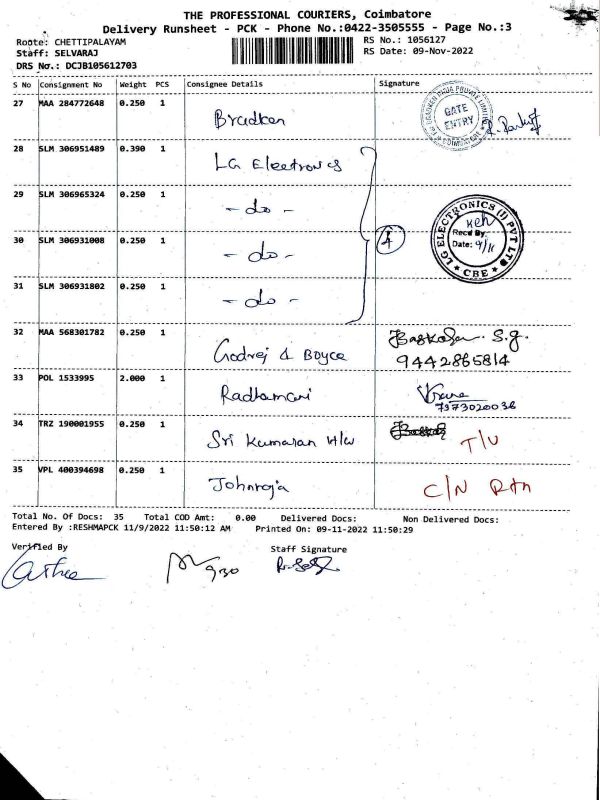 THE PROFESSIONAL COURIERS, Coimbatore
Delivery Runsheet - PCK - Phone No.:0422-3505555 - Page No.:3
Route: CHETTIPALAYAM
RS No.: 1056127
Staff: SELVARAJ
RS Date: 09-Nov-2022
DRS No.: DCJB105612703
S No Consignment No Weight PCS Consignee Details Signature
27 MAA 284772648 0.250 1 Bradken
GATE ENTRY
28 SLM 306951489 0.390 1 LG Electronics
29 SLM 306965324 0.250 1 - do -
30 SLM 306931008 0.250 1 - do - 4
LG ELECTRONICS (I) PVT LTD
Recd By:
Date: 9/11
* CBE *
31 SLM 306931802 0.250 1 - do -
32 MAA 568301782 0.250 1 Godrej & Boyce Baskaran. S.g.
9442865814
33 POL 1533995 2.000 1 Radhamani
7373020036
34 TRZ 190001955 0.250 1 Sri Kumaran H/w T/U
35 VPL 400394698 0.250 1 Johnroja C/N Rtn
Total No. Of Docs: 35 Total COD Amt: 0.00 Delivered Docs: Non Delivered Docs:
Entered By :RESHMAPCK 11/9/2022 11:50:12 AM Printed On: 09-11-2022 11:50:29
Verified By
Staff Signature
930